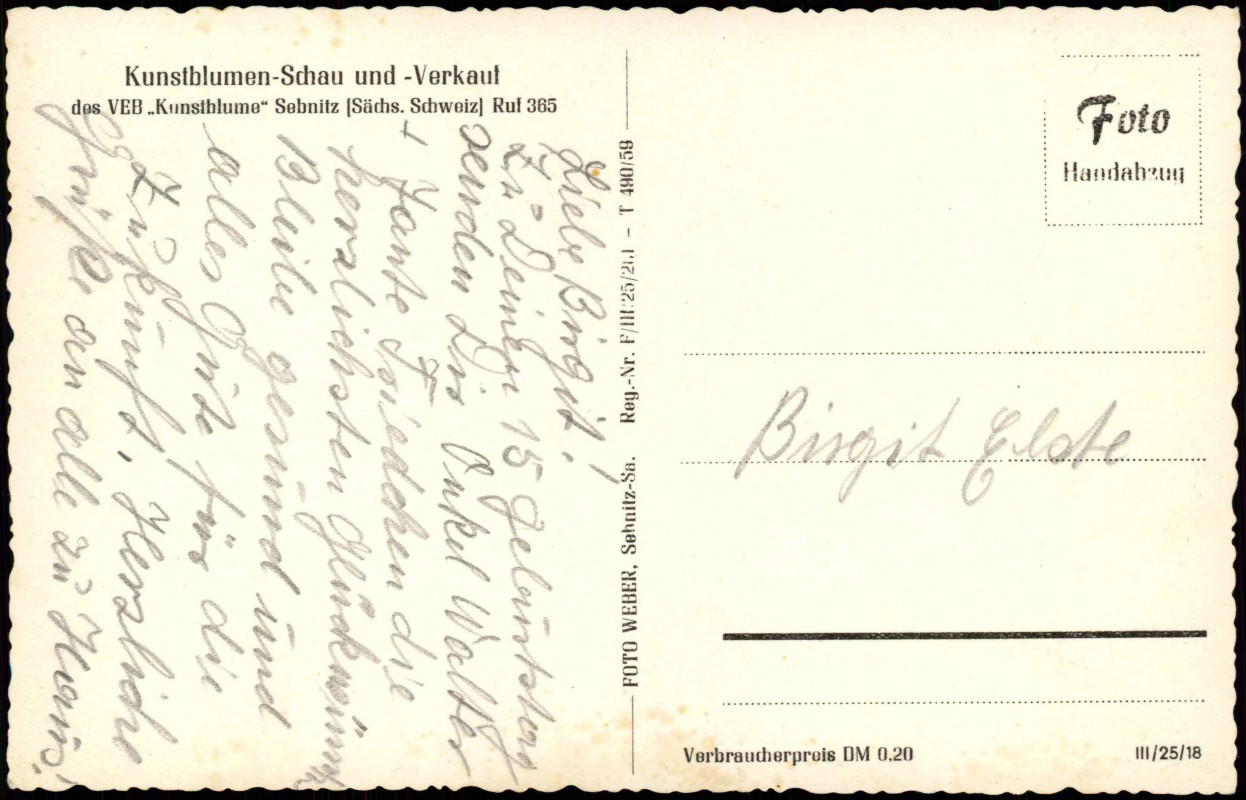 Kunstblumen-Schau und -Verkauf
des VEB „Kunstblume“ Sebnitz (Sächs. Schweiz) Ruf 365
Liebe Birgit!
Zu Deinem 15 Geburtstag
senden Dir Onkel Walter
+ Tante Friedchen die
herzlichsten Glückwünsche
Bleibe gesund und
alles Gute für die
Zukunft. Herzliche
Grüße an alle zu Haus!
FOTO WEBER, Sebnitz-Sa. Reg.-Nr. – T 490/59
Foto
Handabzug
Birgit Elste
Verbraucherpreis DM 0,20
III/25/18